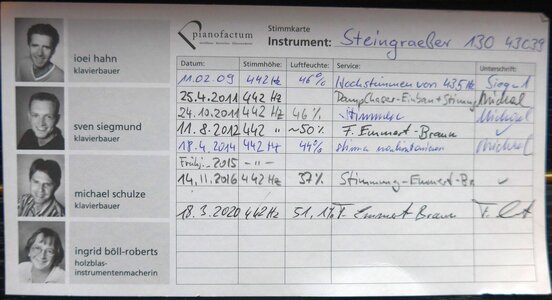 pianofactum
Stimmkarte
Instrument: Steingraeber 130 43039
ioei hahn
klavierbauer
sven siegmund
klavierbauer
michael schulze
klavierbauer
ingrid böll-roberts
holzblas-
instrumentenmacherin
Datum: Stimmhöhe: Luftfeuchte: Service: Unterschrift:
11.02.09 442 Hz 46% Hochstimmen von 435 Hz
25.4.2011 442 Hz Dampfchaser-Einbau + Stimmung Michael
24.10.2011 442 Hz 46% Stimmen Michael
11.8.2012 442 " ~50% F. Emmert-Braun ✓
18.4.2014 442 Hz 44% Michael
Frühj. 2015 -"-
14.11.2016 442 Hz 37% Stimmung-Emmert-Br ✓
18.3.2020 442 Hz 51,1% F. Emmert Braun